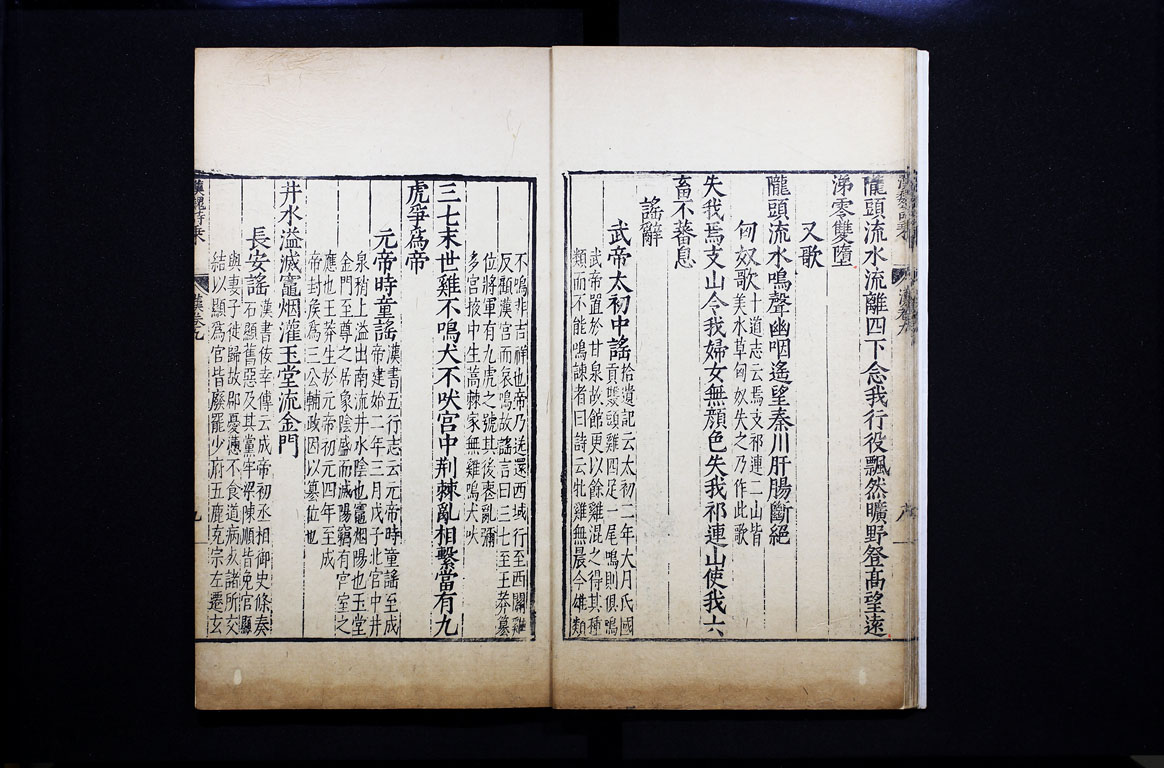 隴頭流水流離四下念我行役飄然曠野登高望遠
涕零雙墮
又歌
隴頭流水鳴聲幽咽遙望秦川肝腸斷絕
匈奴歌十道志云焉支祁連二山皆
美水草匈奴失之乃作此歌
失我焉支山令我婦女無顏色失我祁連山使我六
畜不蕃息
謠辭
武帝太初中謠拾遺記云太初二年大月氏國
貢雙頭雞四足一尾鳴則俱鳴
武帝置於甘泉故館更以餘雞混之得其種
類而不能鳴諫者曰詩云牝雞無晨今雄類
不鳴非吉祥也帝乃送還西域行至西關雞
反顧漢宮而哀鳴故謠言曰三七至王莽篡
位將軍有九虎之號其後喪亂彌
多宮掖中生蒿棘家無雞鳴犬吠
三七末世雞不鳴犬不吠宮中荆棘亂相繫當有九
虎爭為帝
元帝時童謠漢書五行志云元帝時童謠至成
帝建始二年三月戊子北宮中井
泉稍上溢出南流井水陰也竈烟陽也玉堂
金門至尊之居象陰盛而滅陽竊有宮室之
應也王莽生於元帝初元四年至成
帝封矦為三公輔政因以篡位也
井水溢滅竈烟灌玉堂流金門
長安謠漢書佞幸傳云成帝初丞相御史條奏
石顯舊惡及其黨牢梁陳順皆免官顯
與妻子徙歸故郡憂懣不食道病死諸所交
結以顯為官皆廢罷少府五鹿充宗左遷玄
漢魏詩乘
漢卷九
九